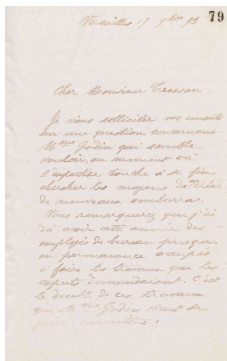 79
Versailles 17 9bre 93
Cher Monsieur Tresson.
Je viens solliciter vos conseils
sur une question concernant
Mme Jodin qui semble
vouloir au moment où
l'expertise touche à sa fin
chercher les moyens de créer
de nouveaux embarras.
Vous remarquerez que j'ai
dû avoir cette année des
employés de bureau presque
en permanence occupés
à faire les travaux que les
experts demandaient. C'est
le double de ces travaux
que Mme Jodin vient de